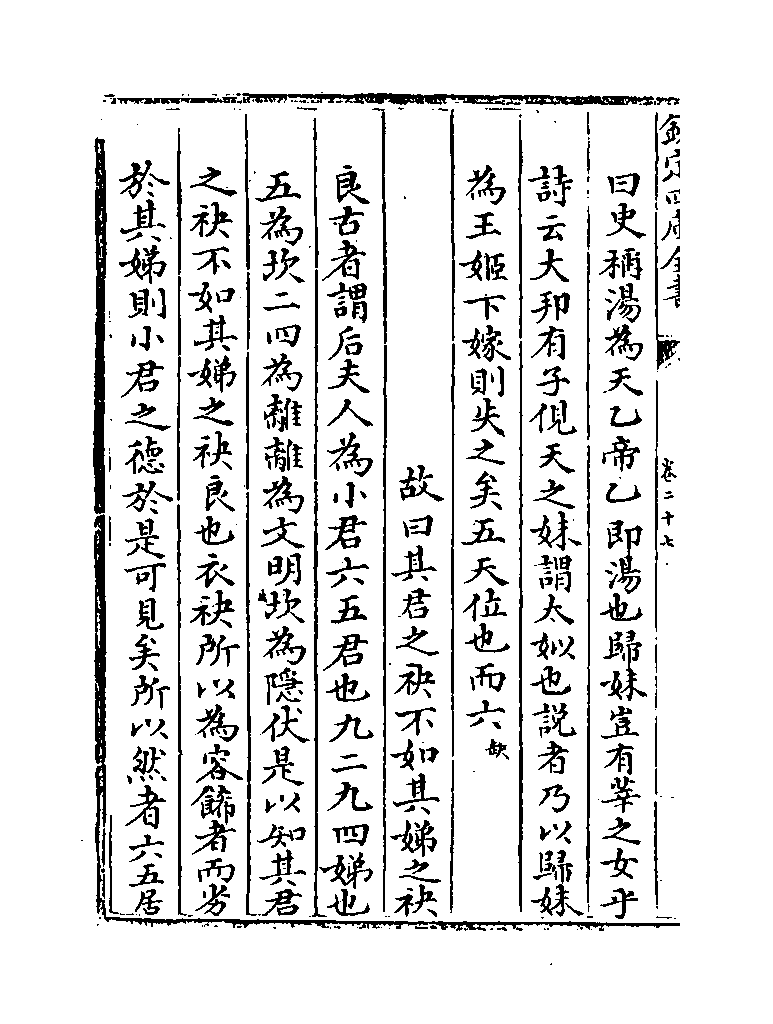 欽定四庫全書
卷二十七
曰史稱湯為天乙帝乙即湯也歸妹豈有莘之女乎
詩云大邦有子俔天之妹謂太姒也説者乃以歸妹
為王姬下嫁則失之矣五天位也而六缺
故曰其君之袂不如其娣之袂
良古者謂后夫人為小君六五君也九二九四娣也
五為坎二四為離離為文明坎為隱伏是以知其君
之袂不如其娣之袂良也衣袂所以為容飾者而劣
於其娣則小君之德於是可見矣所以然者六五居